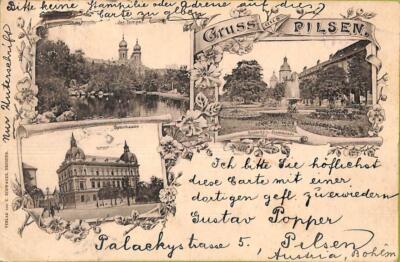 Bitte keine Stampilie oder Adresse auf diese
Carte zu geben
Nur Unterschrift
Gruss aus PILSEN.
Sparkassa
Ich bitte Sie höflichst
diese Carte mit einer
dortigen gefl. zu erwiedern
Gustav Popper
Palackystrasse 5, Pilsen
Austria, Bohem